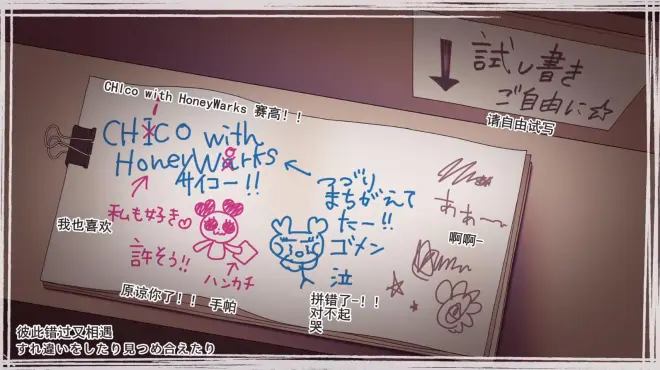 ↓ 試し書き
ご自由に☆
请自由试写
CHIco with HoneyWarks 赛高!!
CHICO with
HoneyWorks
サイコー!!
つづり
まちがえて
たー!!
ゴメン
泣
私も好き♡
我也喜欢
許そう!!
ハンカチ
原谅你了!! 手帕
拼错了-!!
对不起
哭
ああ〜
啊啊-
彼此错过又相遇
すれ違いをしたり見つめ合えたり